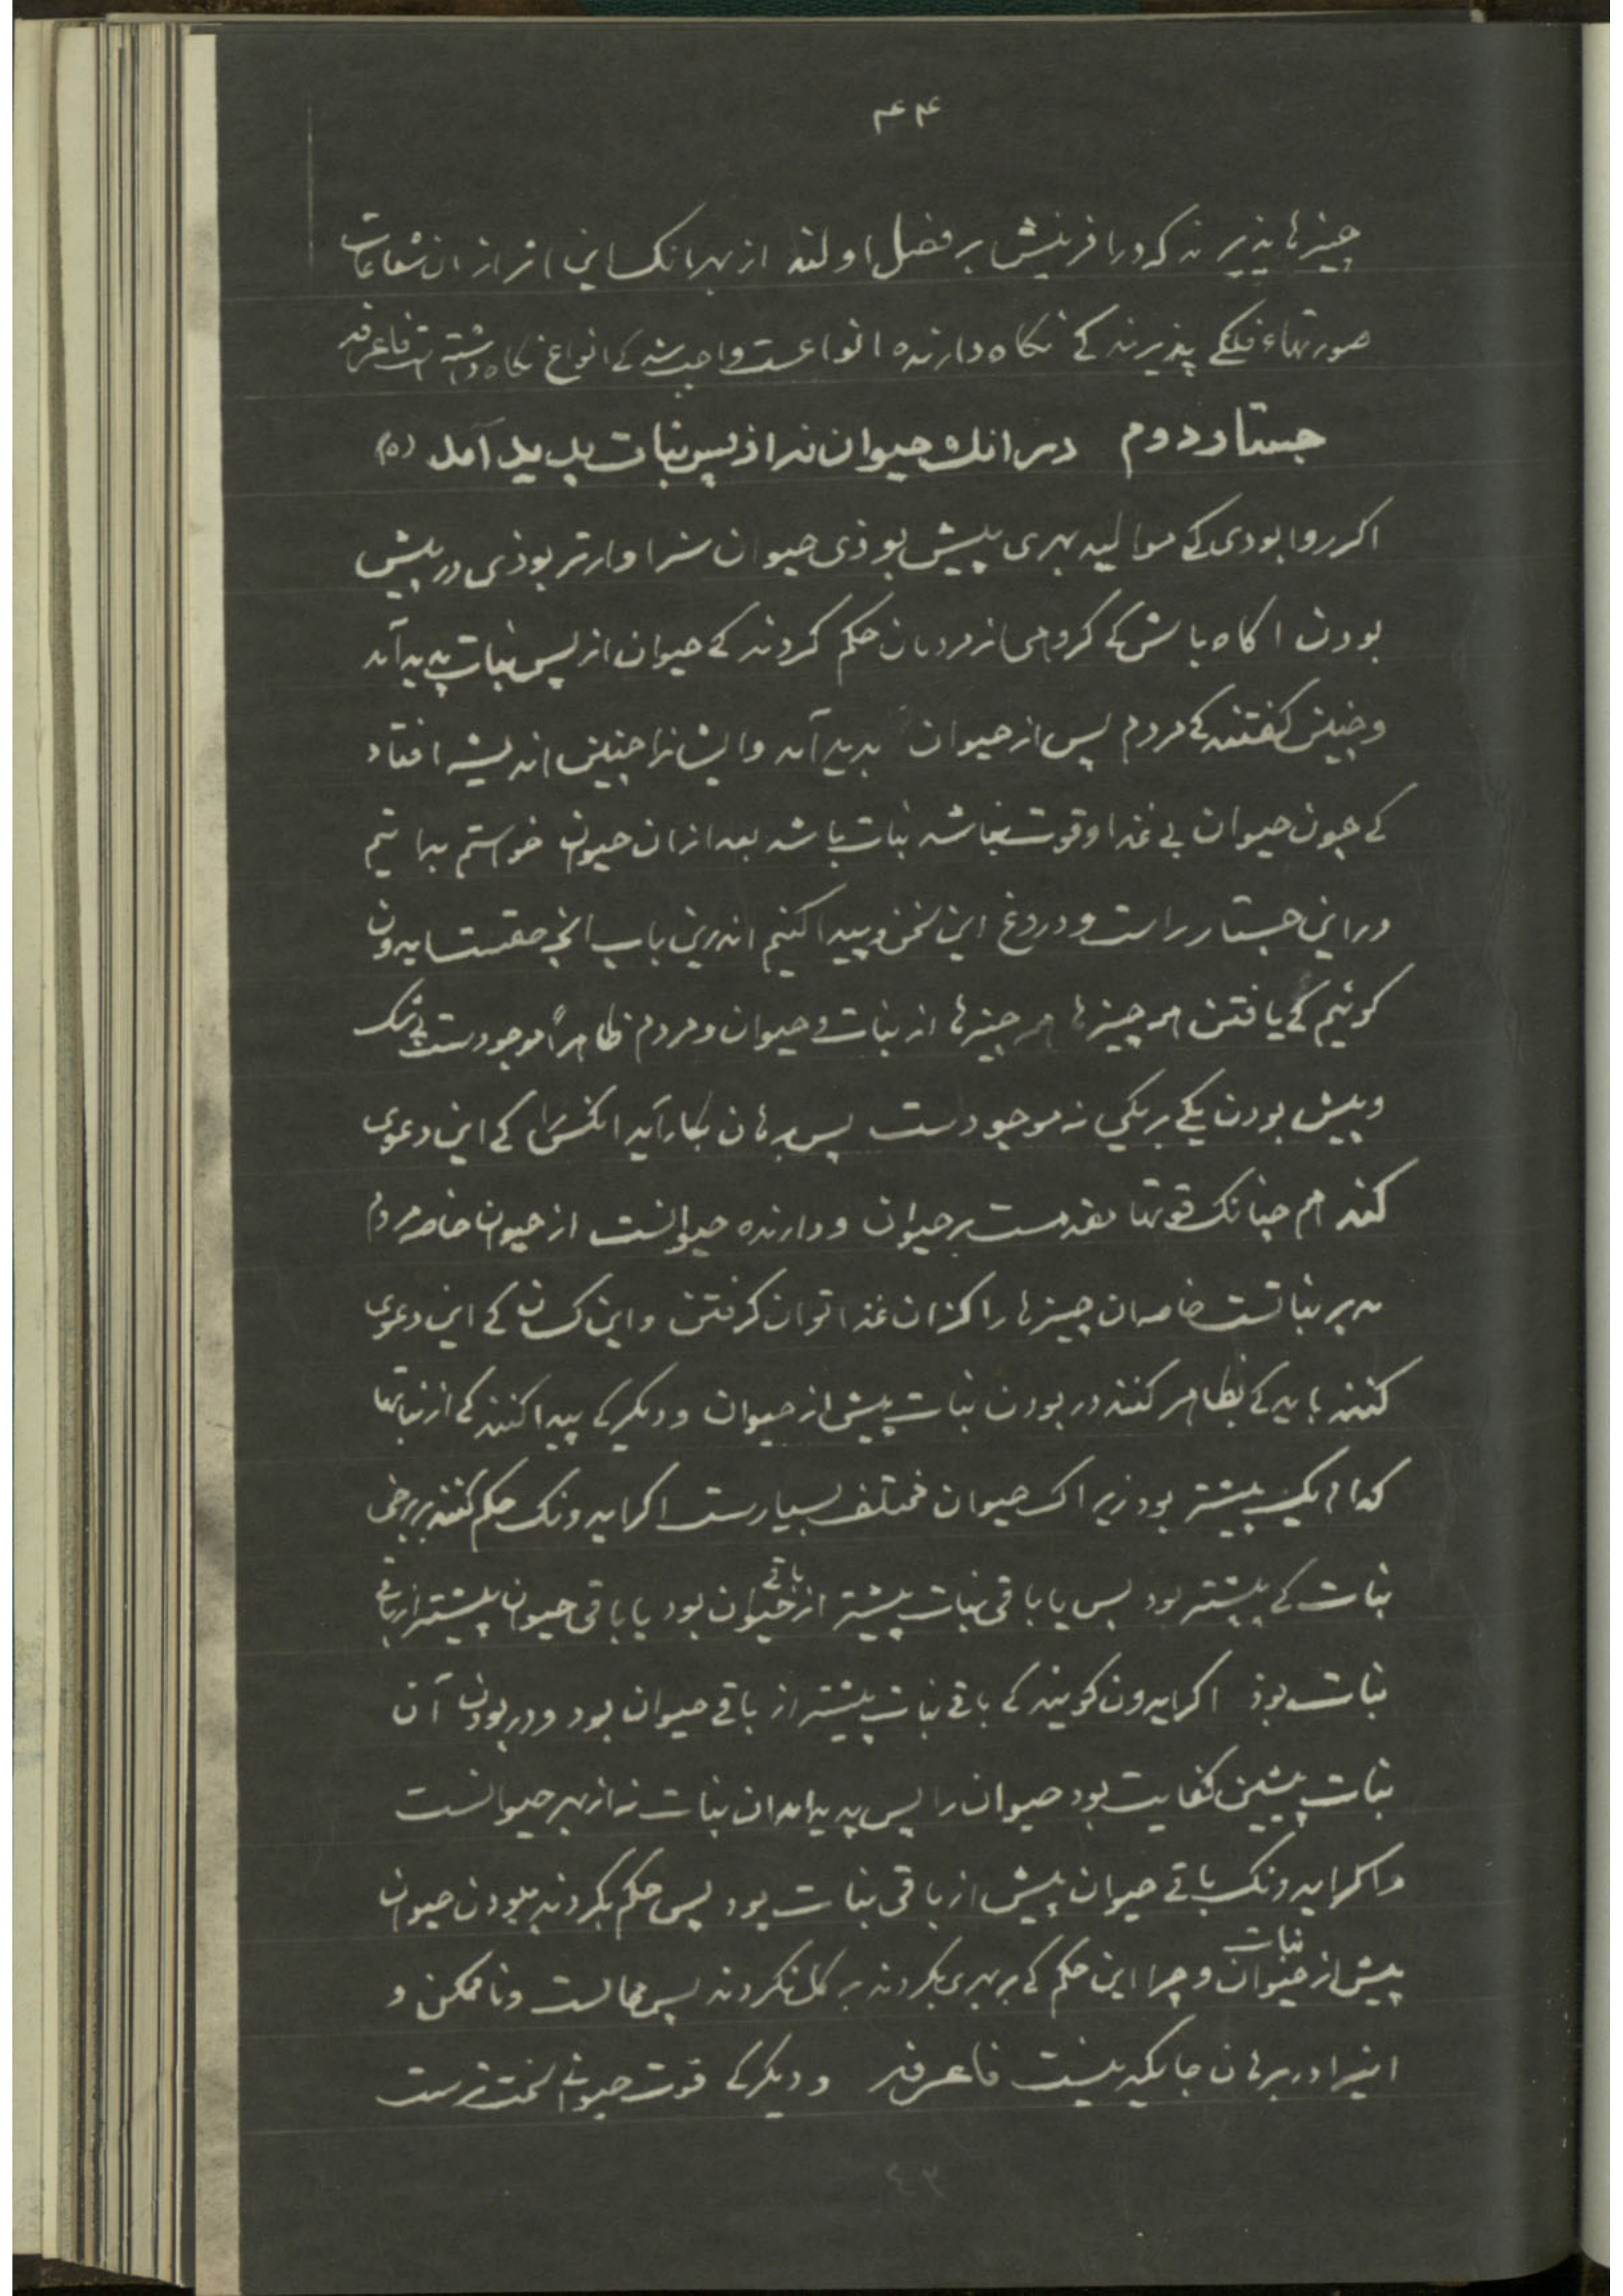 ۴۴
چیزها پذیرند که در افرینش بر فضل اولند از بهر انک این اثر از ان شعاعات
صورتهاء فلکی پذیرند کی نکاه دارنده انواعست واجب شد کی انواع نکاه داشته است فاعرفه
جستار دوم در انك حیوان نه از پس نبات پدید آمد (۵)
اکر روا بودی کی موالید بهری پیش بوذی حیوان سزاوارتر بوذی در پیش
بودن اکاه باش کی کروهی از مردمان حکم کردند کی حیوان از پس نبات پدید آمد
و چنین کفتند کی مردم پس از حیوان بدید آمد و ایشانرا چنین اندیشه افتاد
کی چون حیوان بی غذا و قوت نباشد نبات باشد بعد از ان حیوان خواستم بدانیم
در این جستار راست و دروغ این سخن و پیدا کنیم اندرین باب انج حقست ایدون
کوئیم کی یافتن هر چیزها هر چیزها از نبات و حیوان و مردم ظاهراً موجودست بی شک
و پیش بودن یکی بر یکی نه موجودست پس برهان بکار آید انکس را کی این دعوی
کند هم چنانک قوتها مقدمست بر حیوان و دارنده حیوانست از حیوان خاصه مردم
نه بر نباتست خاصه ان چیزها را کزان غذا توان کرفتن و این کسان کی این دعوی
کنند باید کی بظاهر کنند در بودن نبات پیش از حیوان و دیکر کی پیدا کنند کی از نباتها
کدام یک پیشتر بود زیراک حیوان مختلف بسیارست اکر ایدونک حکم کنند بر برخی
نبات کی پیشتر بود پس یا باقی نبات پیشتر از باقی حیوان بود یا باقی حیوان پیشتر از باقی
نبات بوذ اکر ایدون کویند کی باقی نبات پیشتر از باقی حیوان بود و در بودن آن
نبات پیشین کفایت بود حیوان را پس پدید امدن نبات نه از بهر حیوانست
و اکر ایدونک باقی حیوان پیش از باقی نبات بود پس حکم بکردند ببودن حیوان
پیش از نبات حیوان و چرا این حکم کی بر بهری بکردند بر کل نکردند پس محالست و ناممکن و
اینرا در برهان جایکه نیست فاعرفه و دیکر کی قوت حیوانی سخت ترست